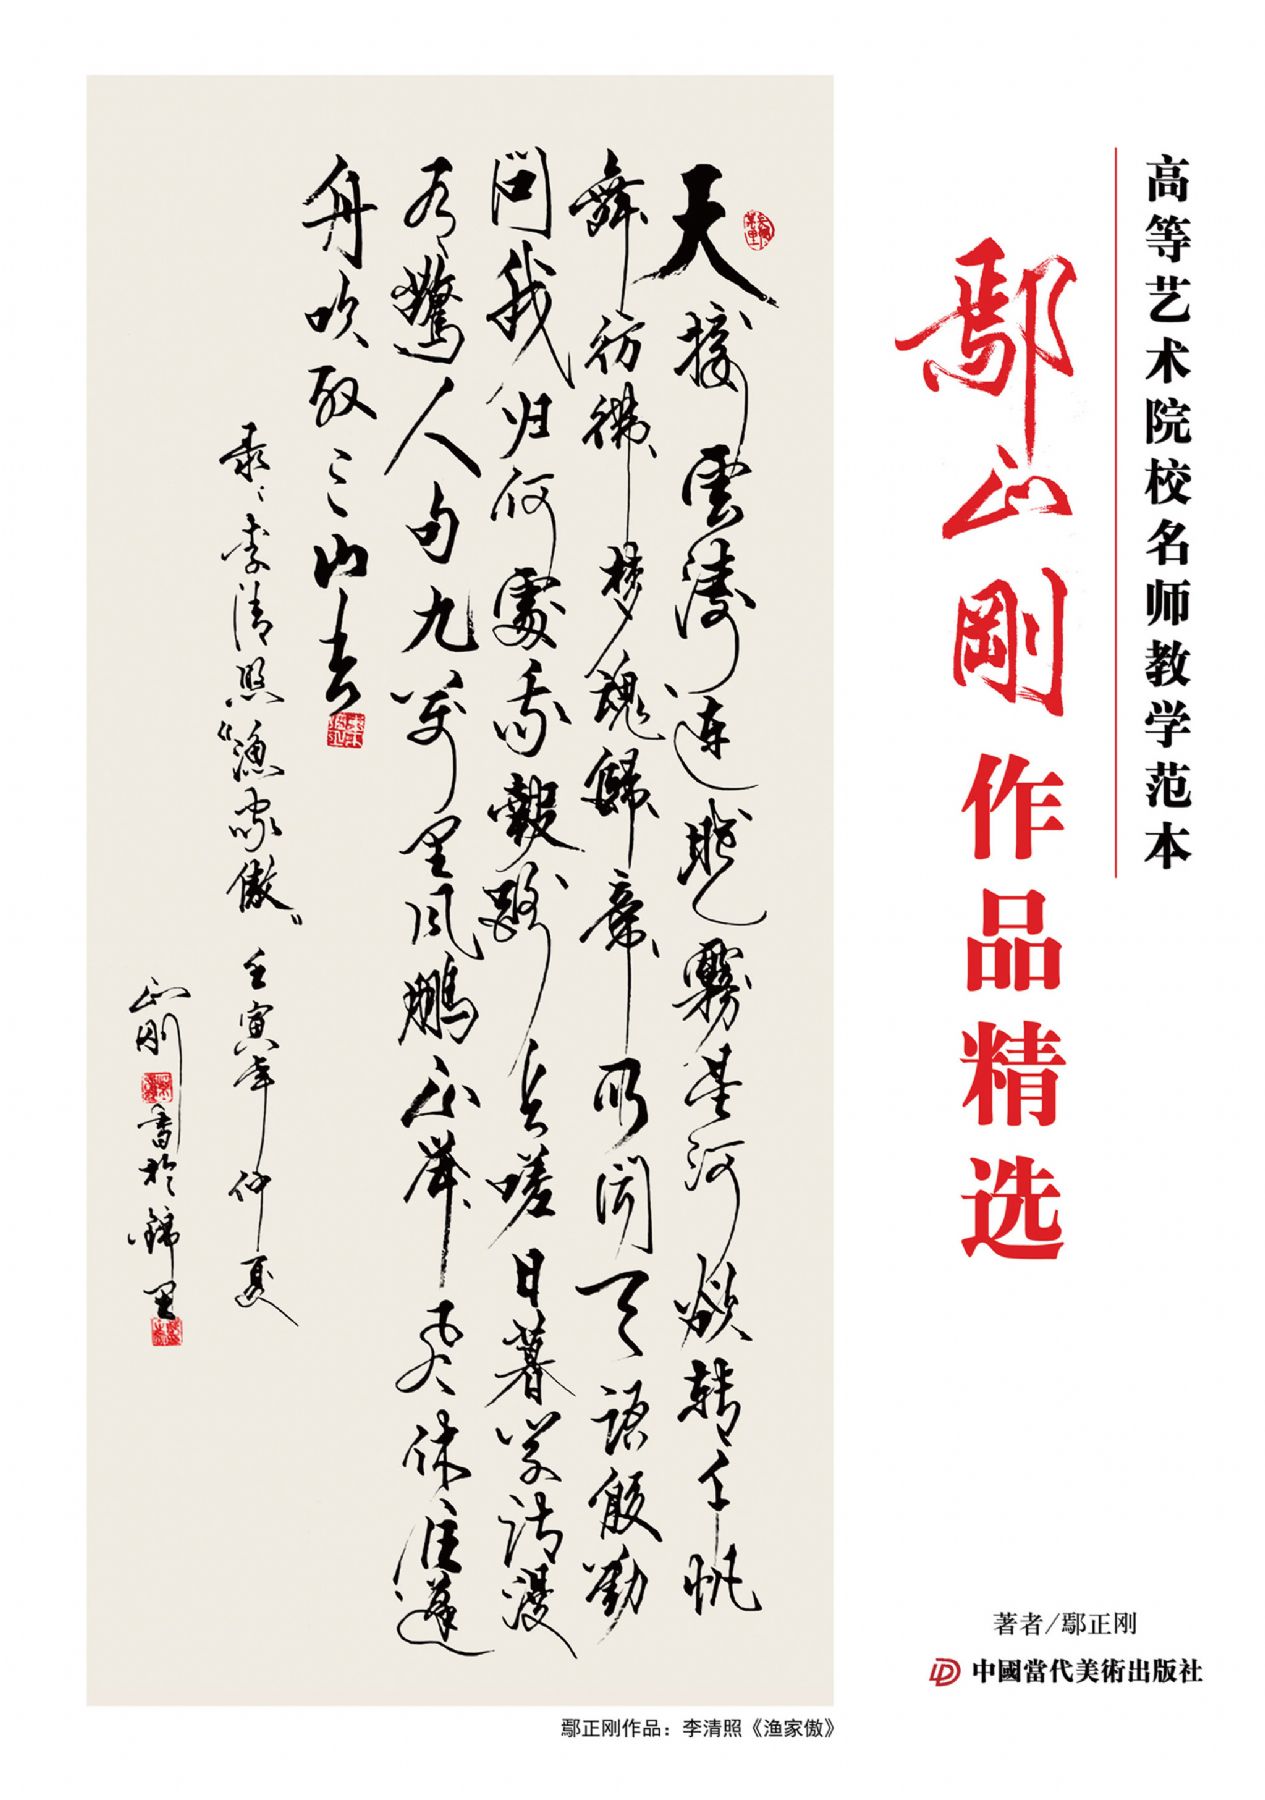 高等艺术院校名师教学范本
鄢正剛作品精选
天接雲濤连曉霧星河欲转千帆
舞彷彿梦魂歸帝所闻天语殷勤
问我归何處我報路长嗟日暮学诗漫
有驚人句九万里风鹏正举风休住蓬
舟吹取三山去
录李清照“渔家傲”壬寅年仲夏
正刚書於锦里
著者/鄢正刚
中國當代美術出版社
鄢正刚作品：李清照《渔家傲》